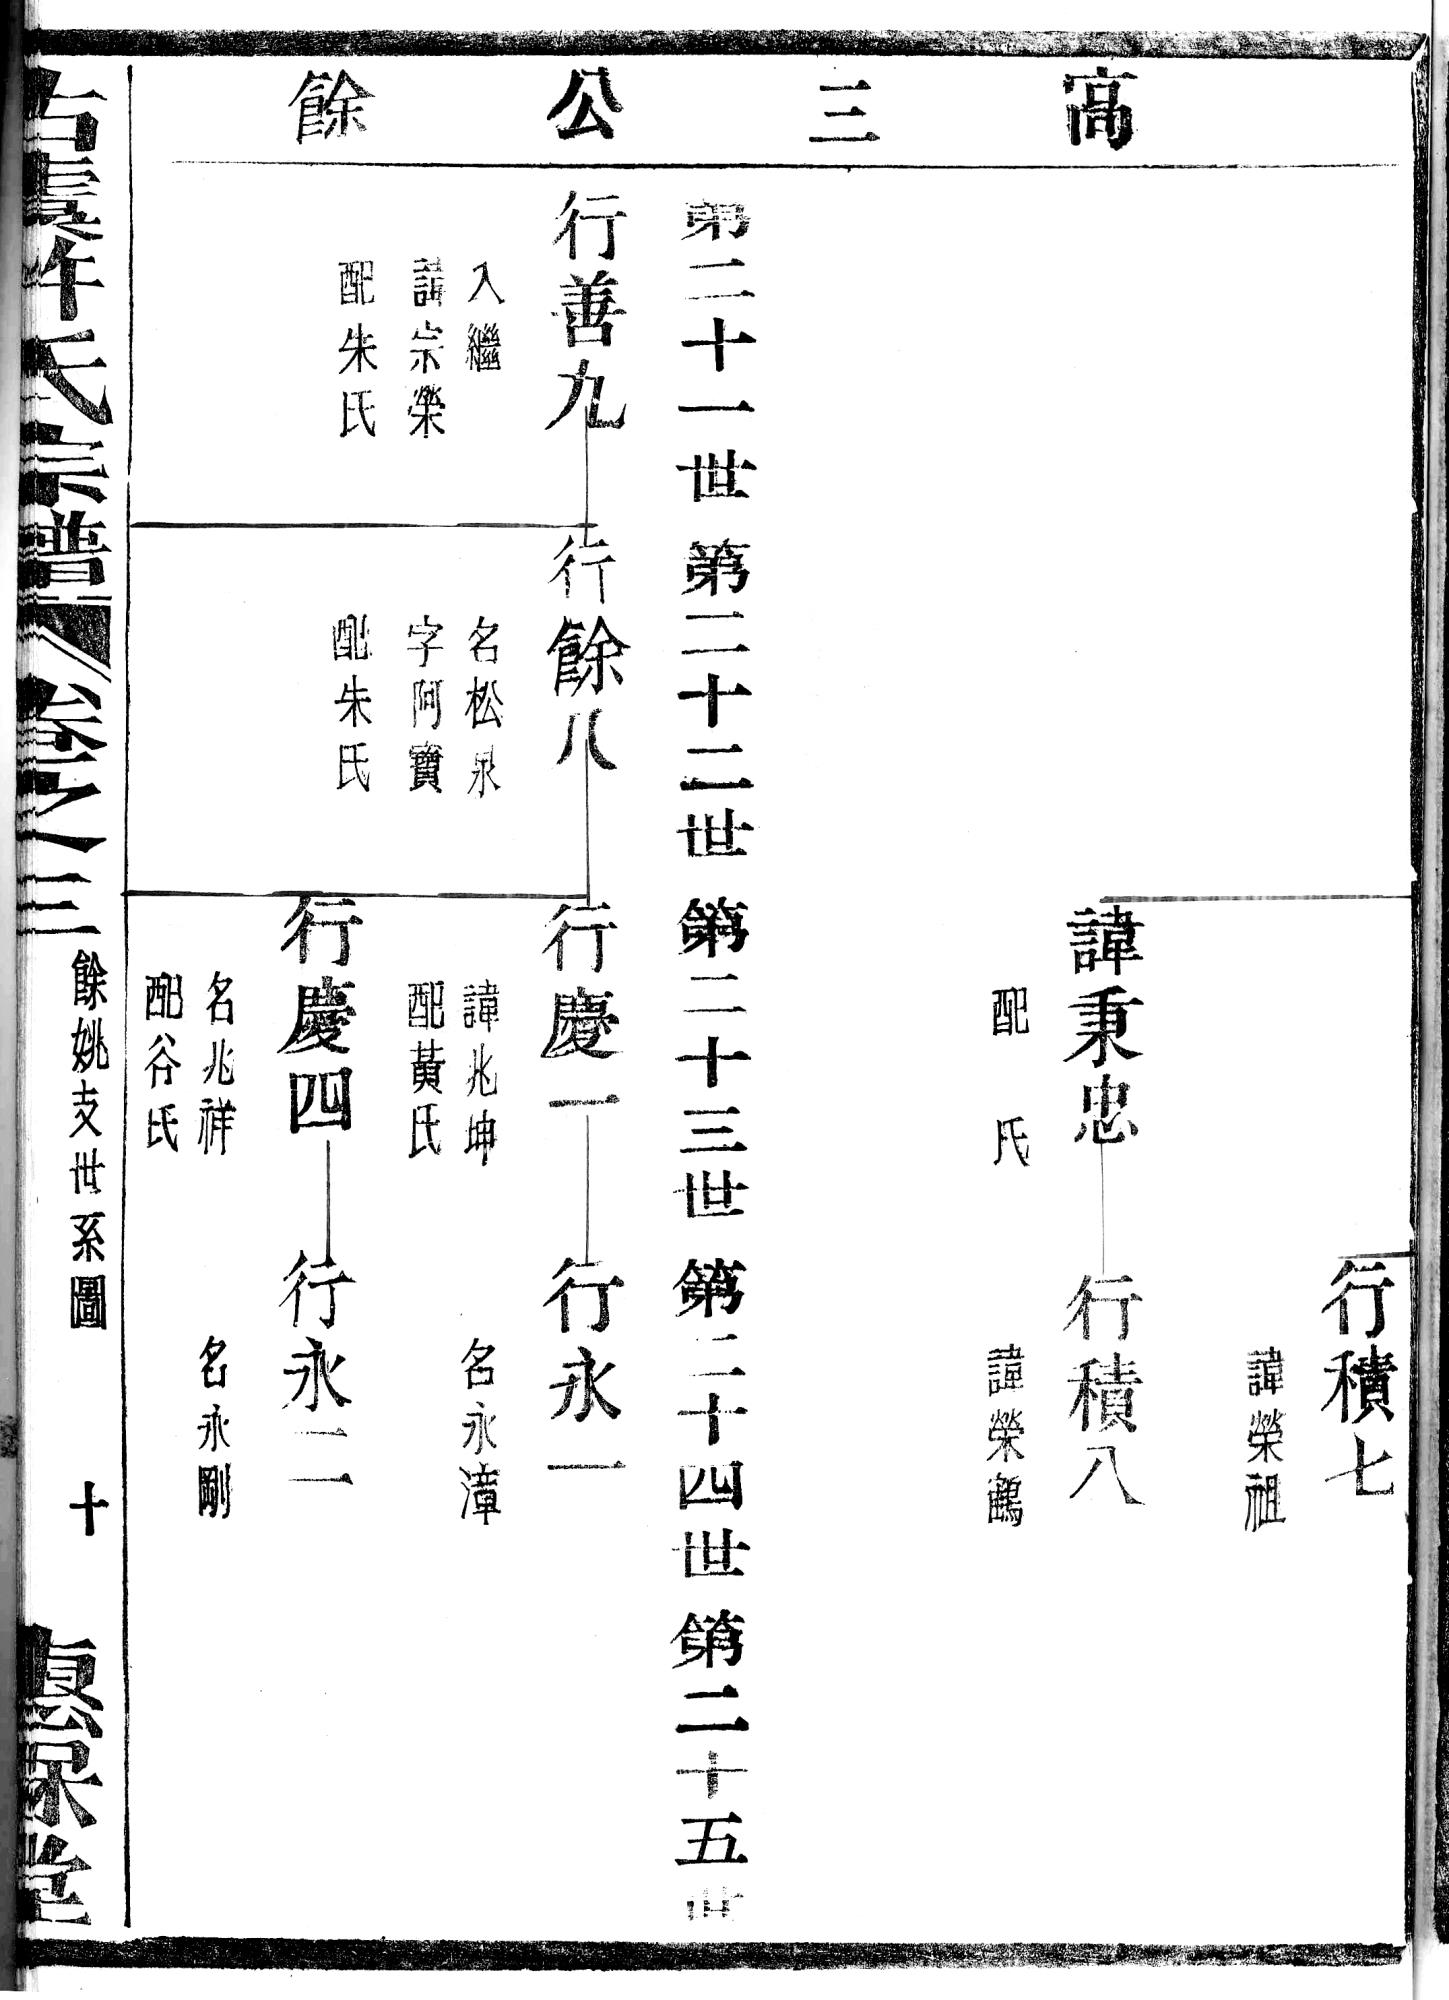 高三公餘
行積七
諱榮祖
諱秉忠
配　氏
行積八
諱榮鶴
第二十一世
第二十二世
第二十三世
第二十四世
第二十五世
行善九
入繼
諱宗榮
配朱氏
行餘八
名松泉
字阿寶
配朱氏
行慶一
諱兆坤
配黃氏
行永一
名永漳
行慶四
名兆祥
配谷氏
行永二
名永剛
古虞許氏宗譜
卷之三
餘姚支世系圖
十